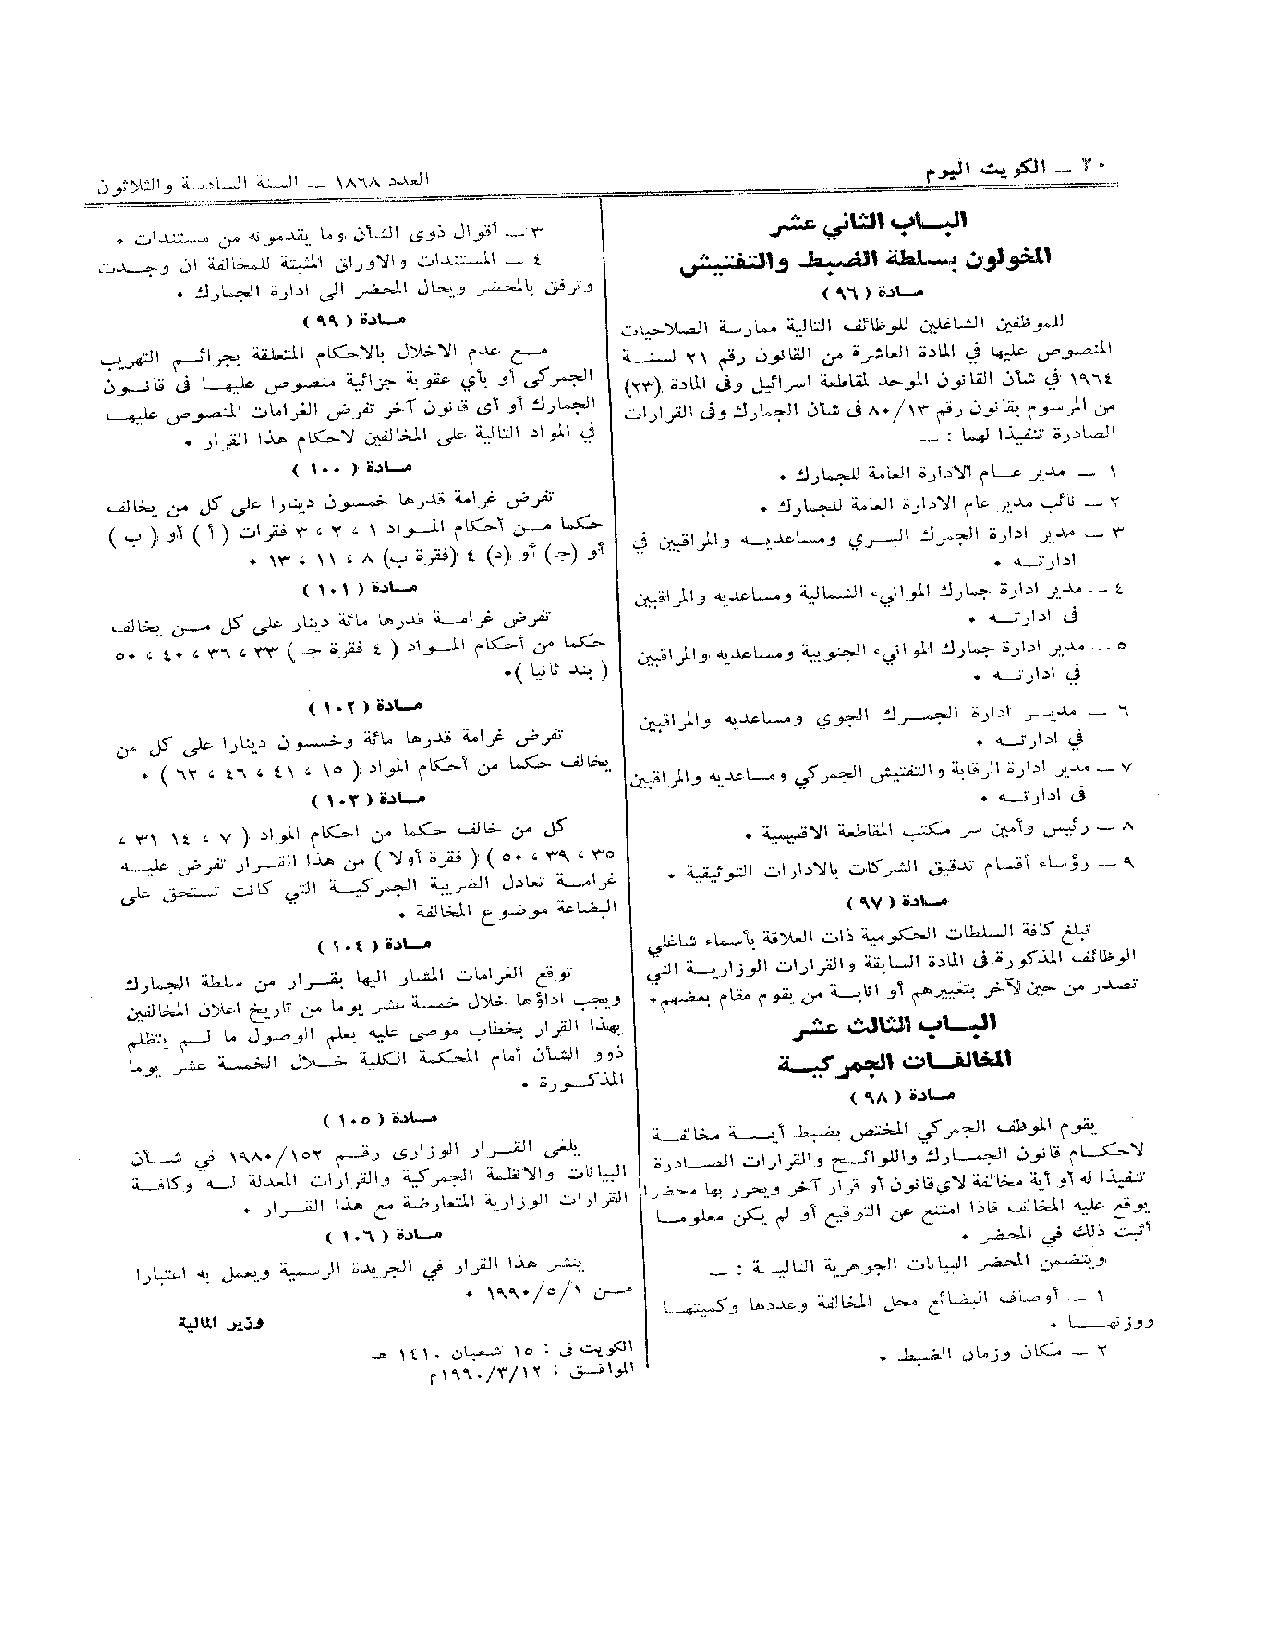 ٢٠ — الكويت اليوم
العدد ١٨٦٨ — السنة السادسة والثلاثون
البـاب الثاني عشر
المخولون بسلطة الضبط والتفتيش
مـادة (٩٦)
للموظفين الشاغلين للوظائف التالية ممارسة الصلاحيات
المنصوص عليها في المادة العاشرة من القانون رقم ٢١ لسنـة
١٩٦٤ في شأن القانون الموحد لمقاطعة اسرائيل وفى المادة (٢٣)
من المرسوم بقانون رقم ٨٠/١٣ فى شأن الجمارك وفى القرارات
الصادرة تنفيذا لهما : —
١ — مدير عـام الادارة العامة للجمارك .
٢ — نائب مدير عام الادارة العامة للجمارك .
٣ — مدير ادارة الجمرك البـري ومساعديـه والمراقبين في
ادارتـه .
٤ — مدير ادارة جمارك الموانيء الشمالية ومساعديه والمراقبين
فى ادارتـه .
٥ — مدير ادارة جمارك الموانيء الجنوبية ومساعديه والمراقبين
في ادارتـه .
٦ — مديـر ادارة الجمـرك الجوي ومساعديه والمراقبين
في ادارتـه .
٧ — مدير ادارة الرقابة والتفتيش الجمركي ومساعديه والمراقبين
فى ادارتـه .
٨ — رئيس وأمين سر مكتب المقاطعة الاقليمية .
٩ — رؤساء أقسام تدقيق الشركات بالادارات التوثيقية .
مـادة (٩٧)
تبلغ كافة السلطات الحكومية ذات العلاقة بأسماء شاغلي
الوظائف المذكورة فى المادة السابقة والقرارات الوزاريـة التي
تصدر من حين لآخر بتغييرهم أو انابـة من يقوم مقام بعضهم .
البـاب الثالث عشر
المخالفـات الجمركيـة
مـادة (٩٨)
يقوم الموظف الجمركي المختص بضبط أيـة مخالفـة
لاحكـام قانون الجمـارك واللوائـح والقرارات الصـادرة
تنفيذا له أو أية مخالفة لاي قانون أو قرار آخر ويحرر بها محضرا
يوقع عليه المخالف فاذا امتنع عن التوقيع أو لم يكن معلومـا
أثبت ذلك في المحضر .
ويتضمن المحضر البيانات الجوهرية التاليـة : —
١ — أوصاف البضائع محل المخالفة وعددها وكميتهـا
ووزنهـا .
٢ — مكان وزمان الضبط .
٣ — أقوال ذوى الشأن وما يقدمونه من مستندات .
٤ — المستندات والاوراق المثبتة للمخالفة ان وجـدت
وترفق بالمحضر ويحال المحضر الى ادارة الجمارك .
مـادة (٩٩)
مـع عدم الاخلال بالاحكام المتعلقة بجرائـم التهريب
الجمركى أو بأي عقوبة جزائية منصوص عليهـا فى قانـون
الجمارك أو أى قانون آخر تفرض الغرامات المنصوص عليهـا
في المواد التالية على المخالفين لاحكام هذا القرار .
مـادة (١٠٠)
تفرض غرامة قدرها خمسون دينارا على كل من يخالف
حكما مـن أحكام المـواد ١ ، ٢ ، ٣ فقرات (أ) أو (ب)
أو (جـ) أو (د) ٤ (فقرة ب) ٨ ، ١١ ، ١٣ .
مـادة (١٠١)
تفرض غرامـة قدرها مائة دينار على كل مـن يخالف
حكما من أحكام المـواد ( ٤ فقرة جـ ) ٣٣ ، ٣٦ ، ٤٠ ، ٥٠
( بند ثانيا ) .
مـادة (١٠٢)
تفرض غرامة قدرها مائة وخمسون دينارا على كل من
يخالف حكما من أحكام المواد ( ١٥ ، ٤١ ، ٤٦ ، ٦٢ ) .
مـادة (١٠٣)
كل من خالف حكما من احكام المواد ( ٧ ، ١٤ ٣١ ،
٣٥ ، ٣٩ ، ٥٠ ) ( فقرة أولا ) من هذا القـرار تفرض عليـه
غرامـة تعادل الضريبة الجمركيـة التي كانت تستحق على
البضاعة موضوع المخالفة .
مـادة (١٠٤)
توقع الغرامات المشار اليها بقـرار من سلطة الجمارك
ويجب اداؤها خلال خمسة عشر يوما من تاريخ اعلان المخالفين
بهذا القرار بخطاب موصى عليه بعلم الوصول ما لـم يتظلم
ذوو الشأن أمام المحكمة الكلية خـلال الخمسة عشر يوما
المذكـورة .
مـادة (١٠٥)
يلغى القـرار الوزارى رقـم ١٩٨٠/١٥٢ في شـأن
البيانات والانظمة الجمركية والقرارات المعدلة لـه وكافـة
القرارات الوزارية المتعارضة مع هذا القـرار .
مـادة (١٠٦)
ينشر هذا القرار في الجريدة الرسمية ويعمل به اعتبارا
مـن ١٩٩٠/٥/١ .
وزير المالية
الكويت فى : ١٥ شعبان ١٤١٠ هـ
الموافـق : ١٩٩٠/٣/١٢م